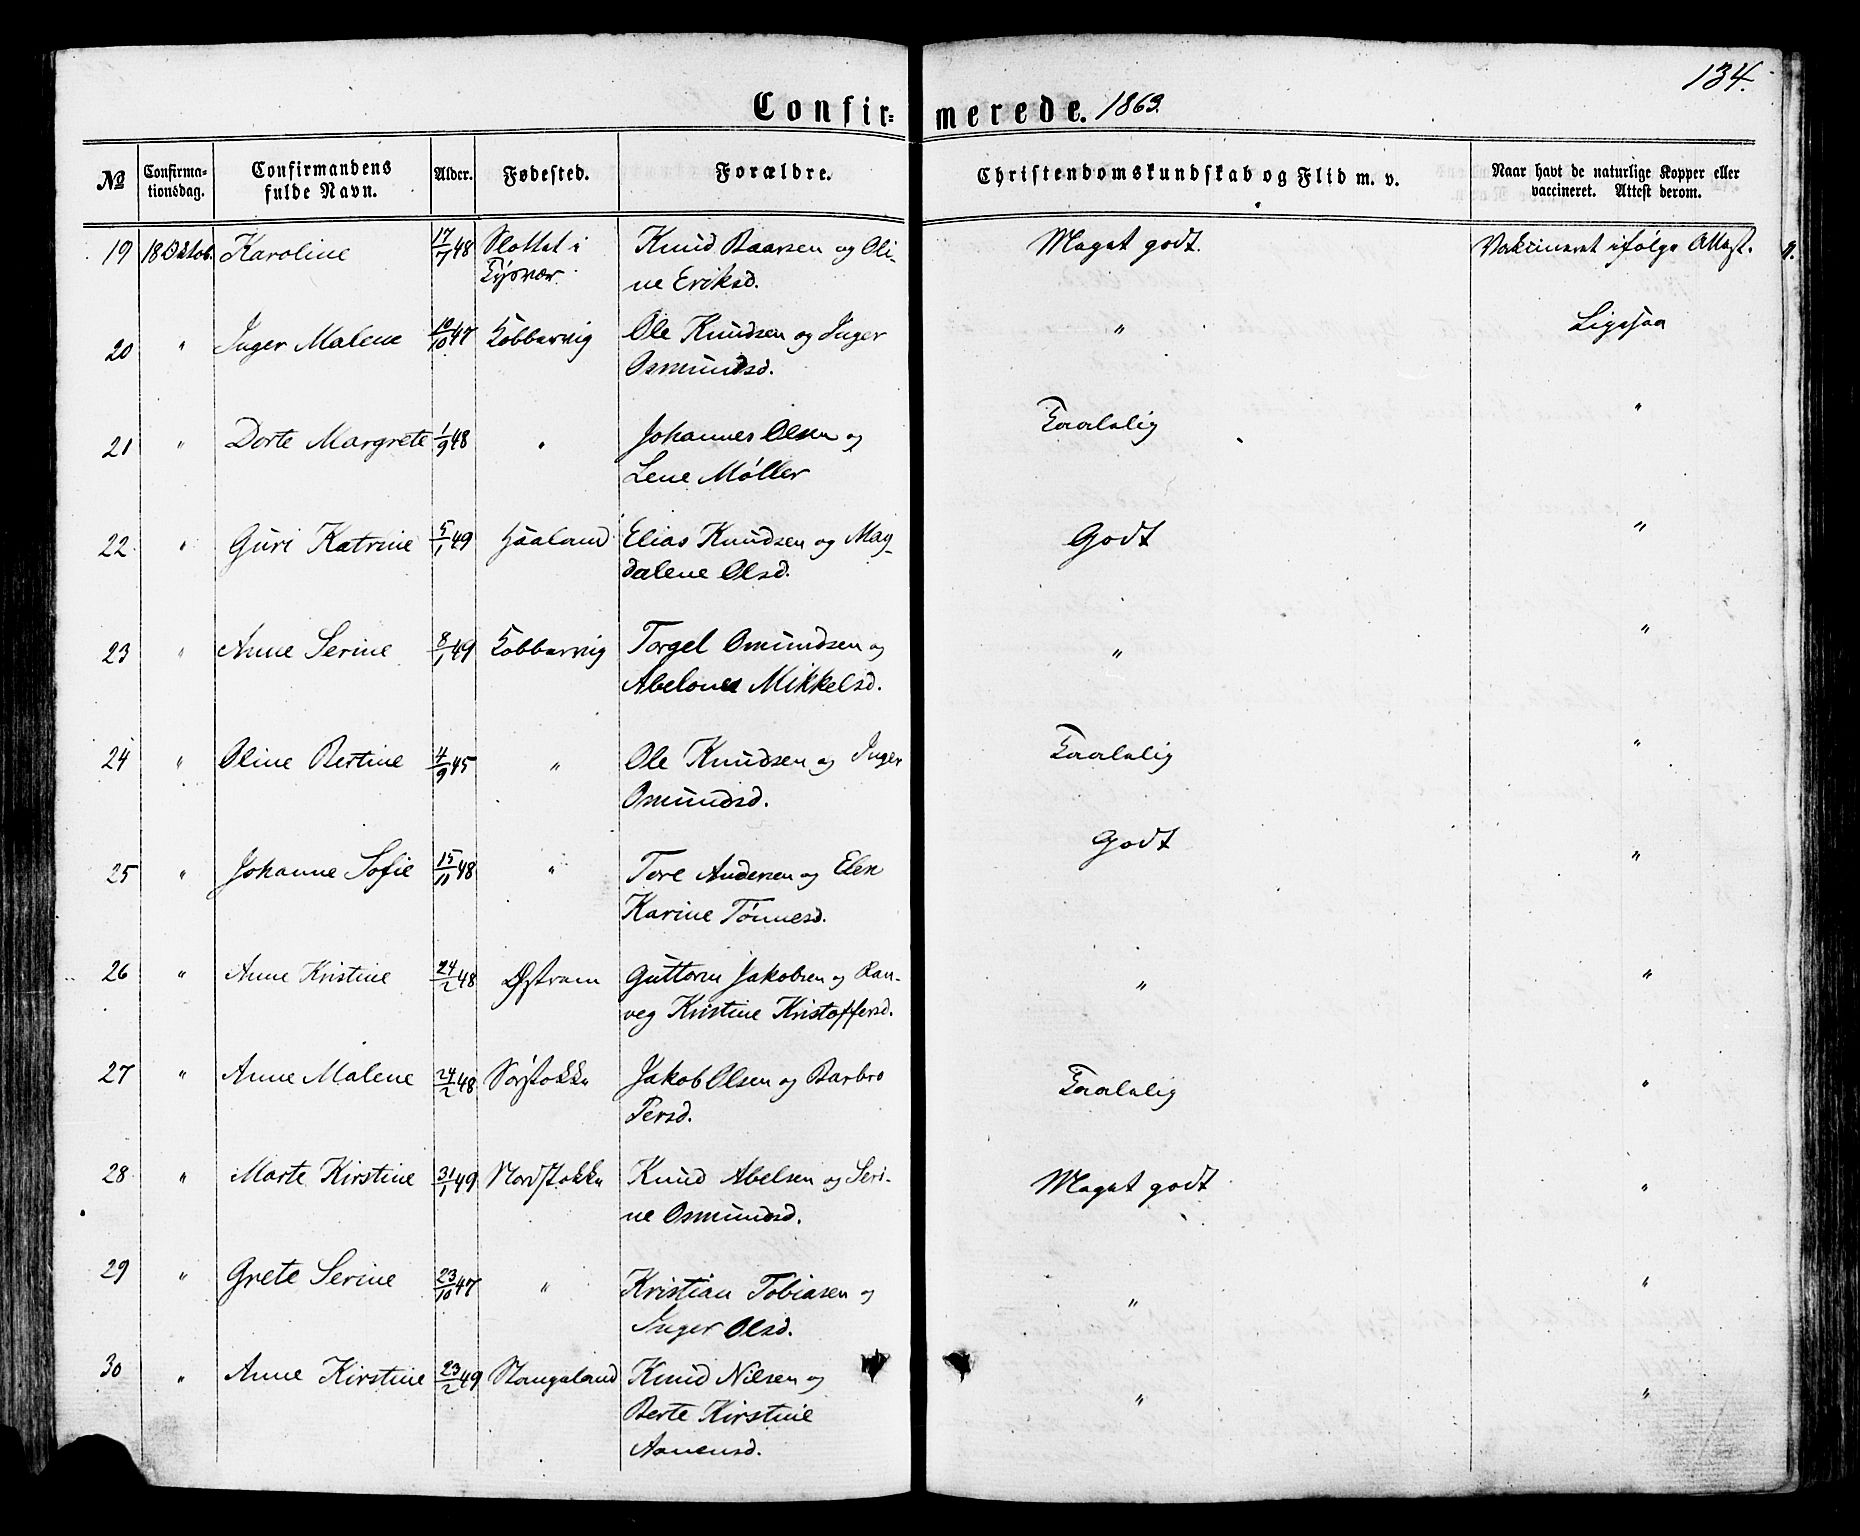 134.
Confir= merede. 1863.
No Confirma- tionsdag. Confirmandens fulde Navn. Alder. Fødested. Forældre. Christendomskundskab og Flid m. v. Naar havt de naturlige Kopper eller vaccineret. Attest derom.
19 18 Oktob. Karoline 17/7 48 Slottet i Knud Baarsen og Oli- Meget godt. Vakcineret ifølge Attest.
Tysvær. ne Eriksd.
20 " Inger Malene 10/10 47 Kobbervig Ole Knudsen og Inger " Ligesaa
Osmundsd.
21 " Dorte Margrete 1/9 48 " Johannes Olsen og Taalelig "
Lene Møller
22 " Guri Katrine 5/1 49 Haaland Elias Knudsen og Mag- Godt "
dalene Olsd.
23 " Anne Serine 8/1 49 Kobbervig Torgel Osmundsen og " "
Abelone Mikkelsd.
24 " Oline Bertine 4/9 45 " Ole Knudsen og Inger Taalelig "
Osmundsd.
25 " Johanne Sofie 15/11 48 " Tore Andersen og Elen Godt "
Karine Tønnesd.
26 " Anne Kristine 24/2 48 Østrem Guttorm Jakobsen og Ran- " "
veg Kristine Kristoffersd.
27 " Anne Malene 24/2 48 Sørstokke Jakob Olsen og Barbro Taalelig "
Persd.
28 " Marte Kirstine 31/1 49 Nordstokke Knud Abelsen og Seri- Meget godt "
ne Osmundsd.
29 " Grete Serine 23/10 47 " Kristian Tobiasen og " "
Inger Olsd.
30 " Anne Kirstine 23/2 49 Stangeland Knud Nilsen og " "
Berte Kirstine
Aanensd.